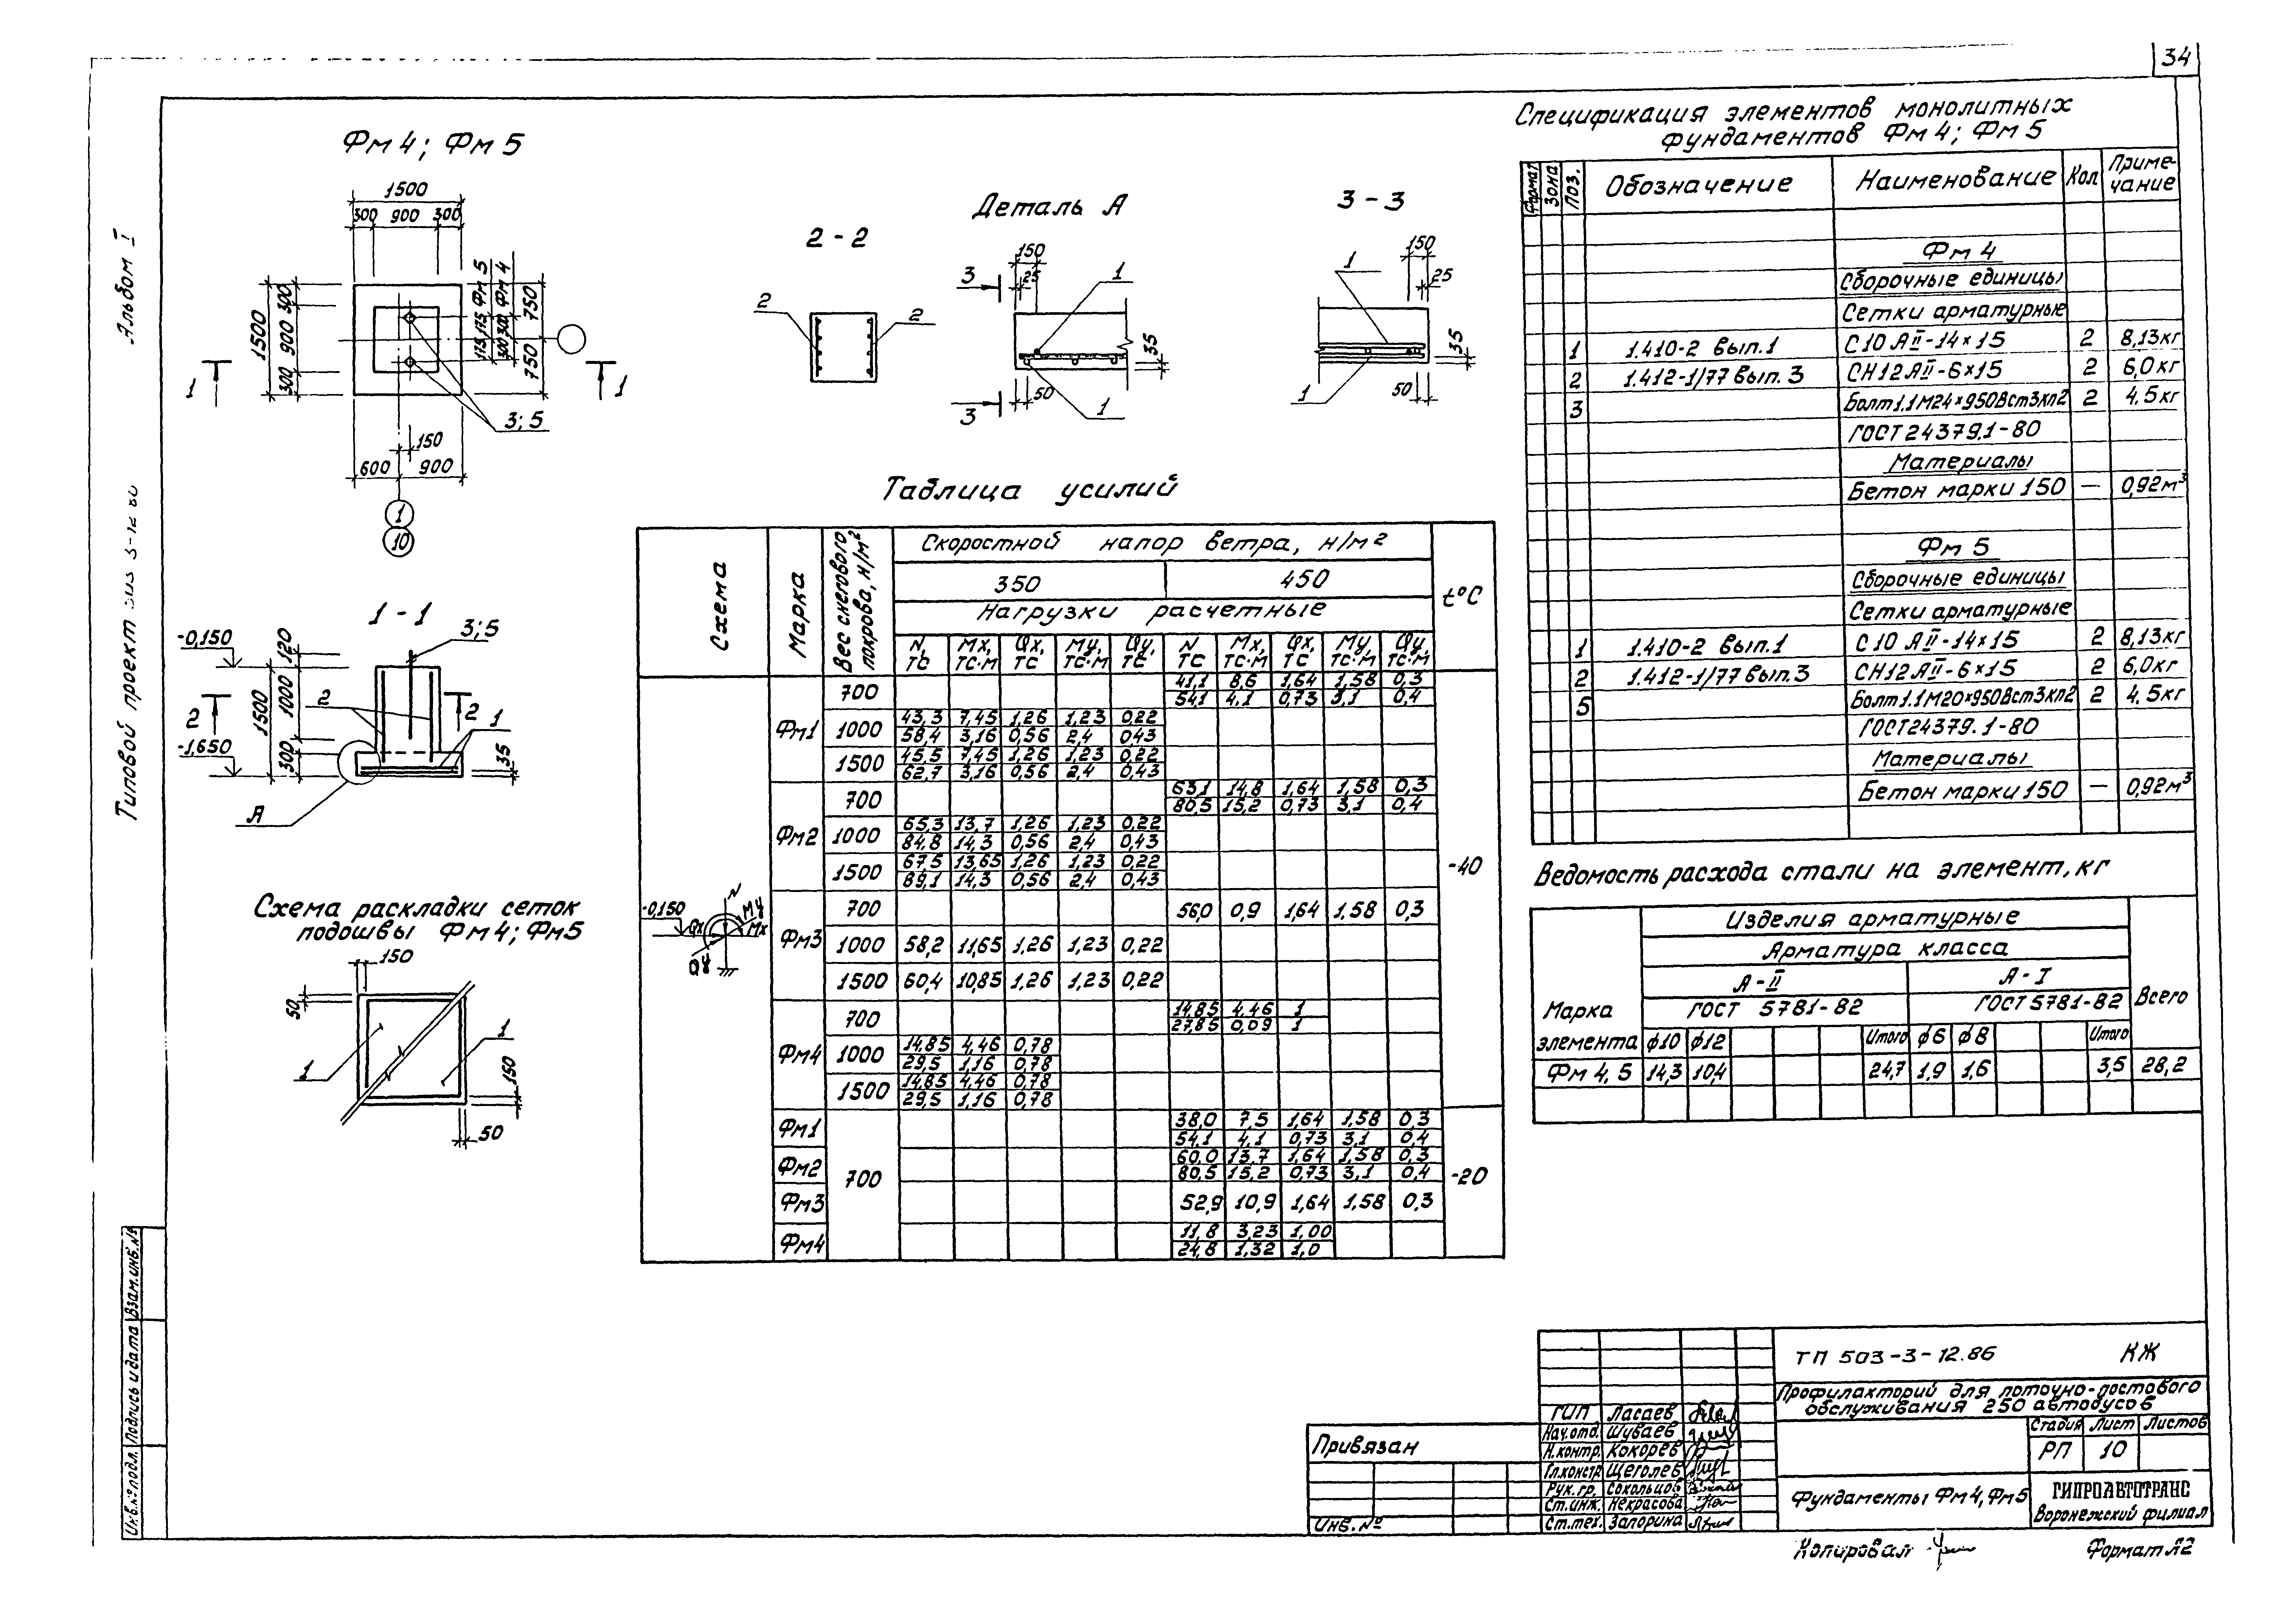 34
Альбом I
Типовой проект 503-3-12.86
Фм 4; Фм 5
1500
300 900 300
1500
300 900 300
175 175 Фм 5
300 300 Фм 4
750 750
1 1
3; 5
150
600 900
1
10
1 - 1
3; 5
-0,150
120
1000
1500
300
2
2 2
1
-1,650
35
А
Схема раскладки сеток
подошвы Фм4; Фм5
150
50
1
1
150
50
2 - 2
2
2
Деталь А
150
25
3
1
35
50
1
3
3 - 3
150
25
1
35
50
1
Таблица усилий
Схема
Марка
Вес снегового покрова, н/м²
Скоростной напор ветра, н/м²
350 450
Нагрузки расчетные
t°C
N, ТС Мх, ТС·М Qх, ТС Му, ТС·М Qу, ТС N ТС Мх, ТС·М Qх, ТС Му, ТС·М Qу, ТС·М
Фм1 700 41,1 8,6 1,64 1,58 0,3
54,1 4,1 0,73 3,1 0,4
1000 43,3 7,45 1,26 1,23 0,22
58,4 3,16 0,56 2,4 0,43
1500 45,5 7,45 1,26 1,23 0,22
62,7 3,16 0,56 2,4 0,43
Фм2 700 63,1 14,8 1,64 1,58 0,3
80,5 15,2 0,73 3,1 0,4
1000 65,3 13,7 1,26 1,23 0,22
84,8 14,3 0,56 2,4 0,43
1500 67,5 13,65 1,26 1,23 0,22
89,1 14,3 0,56 2,4 0,43
-40
Фм3 700 56,0 0,9 1,64 1,58 0,3
1000 58,2 11,65 1,26 1,23 0,22
1500 60,4 10,85 1,26 1,23 0,22
-0,150
N
Му
Мх
Qх
Qу
Фм4 700 14,85 4,46 1
27,85 0,09 1
1000 14,85 4,46 0,78
29,5 1,16 0,78
1500 14,85 4,46 0,78
29,5 1,16 0,78
Фм1 700 38,0 7,5 1,64 1,58 0,3
54,1 4,1 0,73 3,1 0,4
Фм2 60,0 13,7 1,64 1,58 0,3
80,5 15,2 0,73 3,1 0,4
-20
Фм3 52,9 10,9 1,64 1,58 0,3
Фм4 11,8 3,23 1,00
24,8 1,32 1,0
Спецификация элементов монолитных
фундаментов Фм 4; Фм 5
Формат Зона Поз. Обозначение Наименование Кол Примечание
Фм 4
Сборочные единицы
Сетки арматурные
1 1.410-2 вып.1 С10 АII-14×15 2 8,13кг
2 1.412-1/77 вып. 3 СН12 АII-6×15 2 6,0кг
3 Болт1.1М24×950ВСт3кп2 2 4,5кг
ГОСТ 24379.1-80
Материалы
Бетон марки 150 — 0,92м³
Фм 5
Сборочные единицы
Сетки арматурные
1 1.410-2 вып.1 С10 АII-14×15 2 8,13кг
2 1.412-1/77 вып.3 СН12АII-6×15 2 6,0кг
5 Болт1.1М20×950ВСт3кп2 2 4,5кг
ГОСТ24379.1-80
Материалы
Бетон марки 150 — 0,92м³
Ведомость расхода стали на элемент, кг
Марка элемента
Изделия арматурные
Арматура класса
А-II А-I
ГОСТ 5781-82 ГОСТ 5781-82
Всего
ф10 ф12 Итого ф6 ф8 Итого
Фм 4, 5 14,3 10,4 24,7 1,9 1,6 3,5 28,2
ТП 503-3-12.86 КЖ
Профилакторий для поточно-постового
обслуживания 250 автобусов
ГИП Ласаев
Нач.отд. Шуваев
Н.контр. Кокорев
Гл.констр Щеголев
Рук.гр. Сокольцов
Ст.инж. Некрасова
Ст.тех. Запорина
Стадия Лист Листов
РП 10
Фундаменты Фм4, Фм5
ГИПРОАВТОТРАНС
Воронежский филиал
Привязан
Инв.№
Копировал
Формат А2
Взам.инв.№
Подпись и дата
Инв.№ подл.